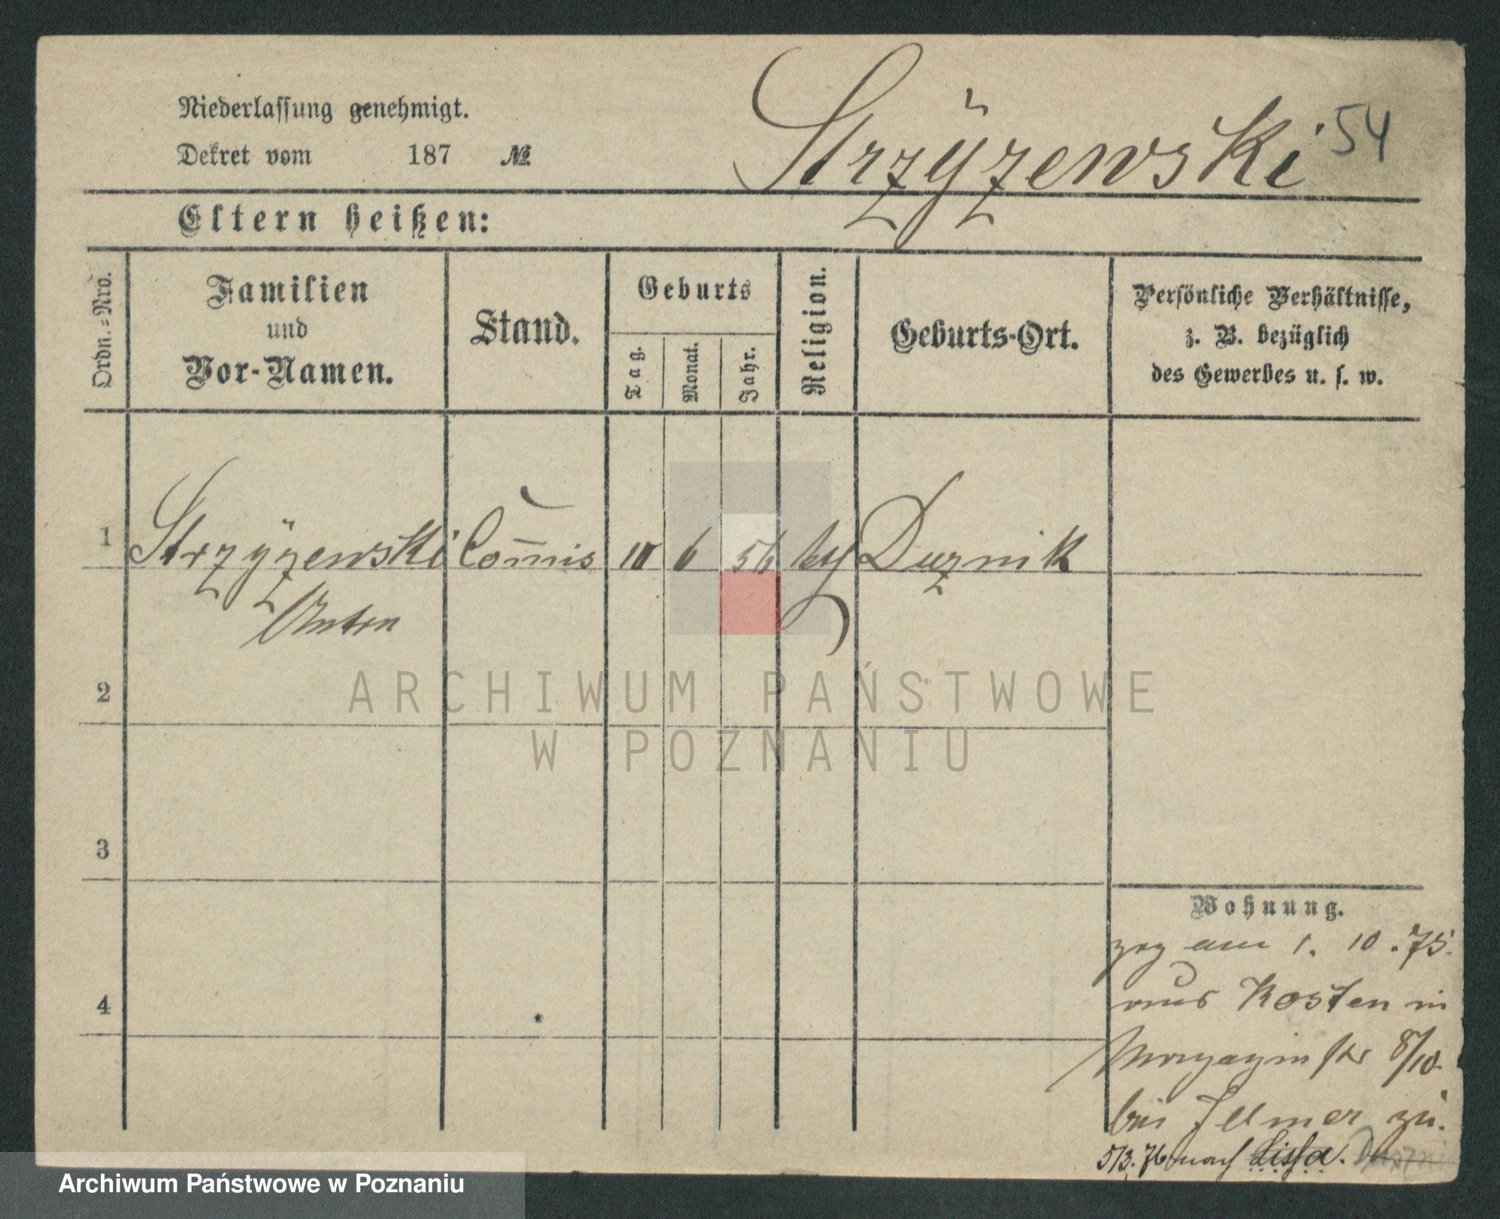 Niederlassung genehmigt.
Dekret vom 187 №
Strzyzewski 54
Eltern heißen:
Ordn.=Nro.
Familien
und
Vor-Namen.
Stand.
Geburts
Tag.
Monat.
Jahr.
Religion.
Geburts-Ort.
Persönliche Verhältnisse,
z. B. bezüglich
des Gewerbes u. s. w.
1 Strzyzewski Com̄is 10 6 56 kth Duznik
Anton
2
3
4
Wohnung.
zog am 1. 10. 75.
aus Kosten in
8/10
bei Illmer zu.
5/3. 76 nach Lissa.
ARCHIWUM PAŃSTWOWE
W POZNANIU
Archiwum Państwowe w Poznaniu